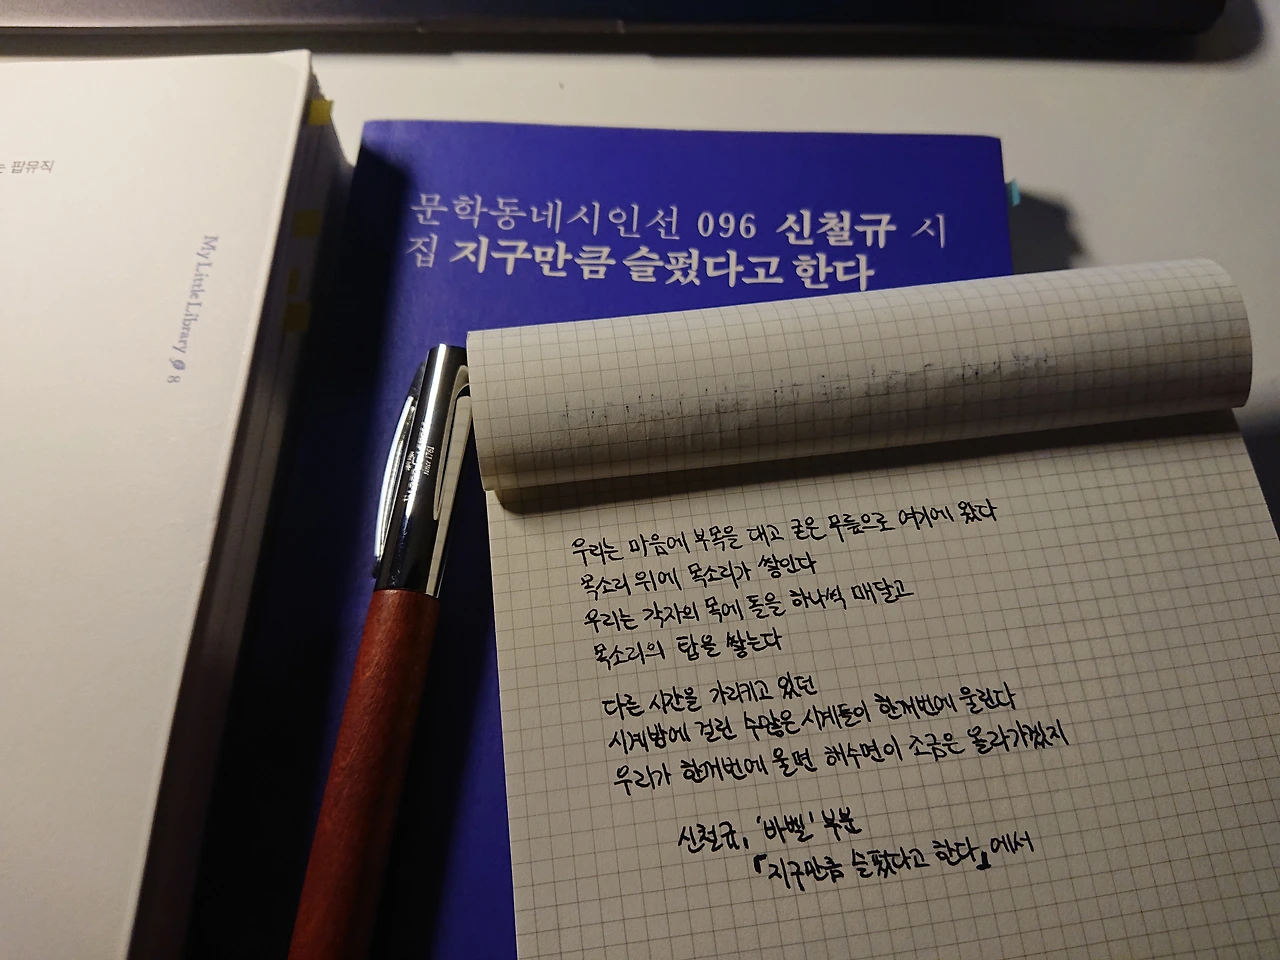 는 팝뮤직
My Little Library 8
문학동네시인선 096 신철규 시
집 지구만큼 슬펐다고 한다
우리는 마음에 부목을 대고 굳은 무릎으로 여기에 왔다
목소리 위에 목소리가 쌓인다
우리는 각자의 목에 돌을 하나씩 매달고
목소리의 탑을 쌓는다
다른 시간을 가리키고 있던
시계방에 걸린 수많은 시계들이 한꺼번에 울린다
우리가 한꺼번에 울면 해수면이 조금은 올라가겠지
신철규, '바벨' 부분
『지구만큼 슬펐다고 한다』에서